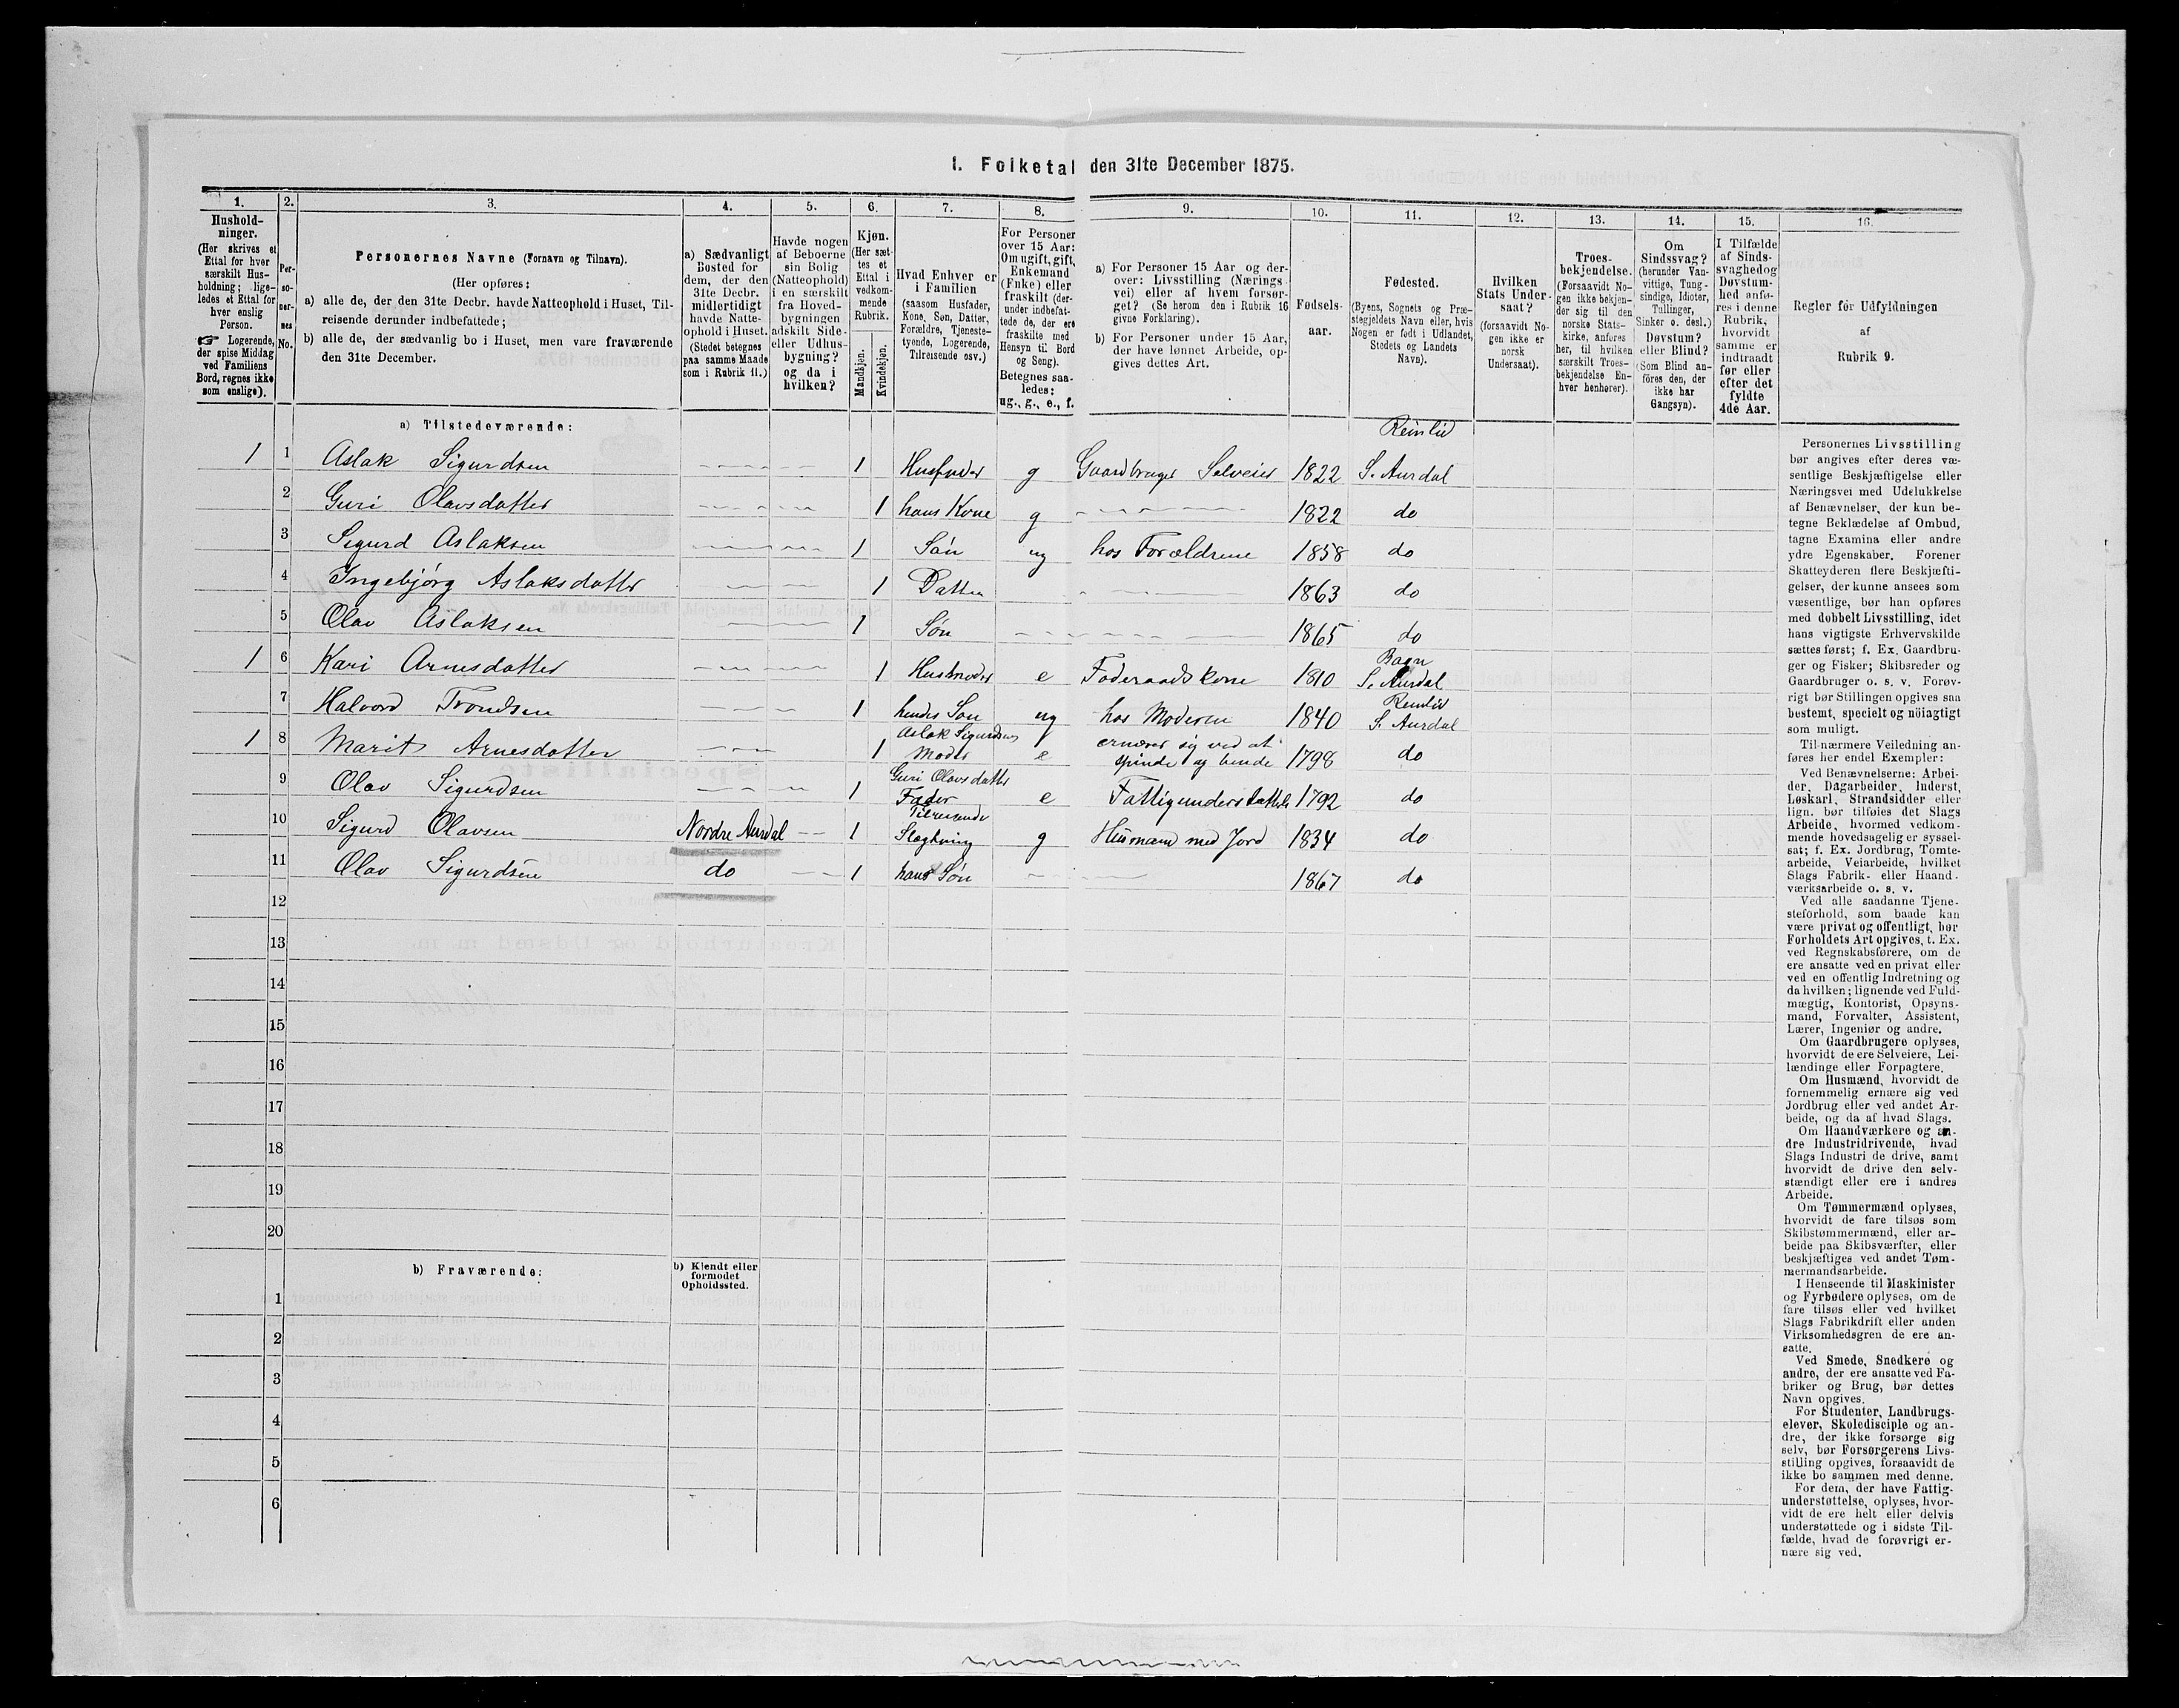 1. Folketal den 31te December 1875.
1. 2. 3. 4. 5. 6. 7. 8. 9. 10. 11. 12. 13. 14. 15. 16.
Hushold-
ninger.
(Her skrives et
Ettal for hver
særskilt Hus-
holdning; lige-
ledes et Ettal for
hver enslig
Person.
☞ Logerende,
der spise Middag
ved Familiens
Bord, regnes ikke
som enslige).
Per-
so-
ner-
nes
No.
Personernes Navne (Fornavn og Tilnavn).
(Her opføres:
a) alle de, der den 31te Decbr. havde Natteophold i Huset, Til-
reisende derunder indbefattede;
b) alle de, der sædvanlig bo i Huset, men vare fraværende
den 31te December.
a) Sædvanligt
Bosted for
dem, der den
31te Decbr.
midlertidigt
havde Natte-
ophold i Huset.
(Stedet betegnes
paa samme Maade
som i Rubrik 11.)
Havde nogen
af Beboerne
sin Bolig
(Natteophold)
i en særskilt
fra Hoved-
bygningen
adskilt Side-
eller Udhus-
bygning?
og da i
hvilken?
Kjøn.
(Her sæt-
tes et
Ettal i
vedkom-
mende
Rubrik.
Mandkjøn.
Kvindekjøn.
Hvad Enhver er
i Familien
(saasom Husfader,
Kone, Søn, Datter,
Forældre, Tjeneste-
tyende, Logerende,
Tilreisende osv.)
For Personer
over 15 Aar:
Om ugift, gift,
Enkemand
(Enke) eller
fraskilt (der-
under indbefat-
tede de, der ere
fraskilte med
Hensyn til Bord
og Seng).
Betegnes saa-
ledes:
ug., g., e., f.
a) For Personer 15 Aar og der-
over: Livsstilling (Nærings-
vei) eller af hvem forsør-
get? (Se herom den i Rubrik 16
givne Forklaring).
b) For Personer under 15 Aar,
der have lønnet Arbeide, op-
gives dettes Art.
Fødsels-
aar.
Fødested.
(Byens, Sognets og Præ-
stegjeldets Navn eller, hvis
Nogen er født i Udlandet,
Stedets og Landets
Navn).
Hvilken
Stats Under-
saat?
(forsaavidt No-
gen ikke er
norsk
Undersaat).
Troes-
bekjendelse.
(Forsaavidt No-
gen ikke bekjen-
der sig til den
norske Stats-
kirke, anføres
her, til hvilken
særskilt Troes-
bekjendelse En-
hver henhører).
Om
Sindssvag?
(herunder Van-
vittige, Tung-
sindige, Idioter,
Tullinger,
Sinker o. desl.)
Døvstum?
eller Blind?
(Som Blind an-
føres den, der
ikke har
Gangsyn).
I Tilfælde
af Sinds-
svaghed og
Døvstum-
hed anfø-
res i denne
Rubrik,
hvorvidt
samme er
indtraadt
før eller
efter det
fyldte
4de Aar.
Regler før Udfyldningen
af
Rubrik 9.
a) Tilstedeværende:
Reinlid
1 1 Aslak Sigurdsen 1 Husfader g Gaardbruger Selveier 1822 S. Aurdal
2 Guri Olavsdatter 1 hans Kone g 1822 do
3 Sigurd Aslaksen 1 Søn ug hos Forældrene 1858 do
4 Ingebjørg Aslaksdatter 1 Datter 1863 do
5 Olav Aslaksen 1 Søn 1865 do
Bagn
1 6 Kari Arnesdatter 1 Husmoder e Føderaadskone 1810 S. Aurdal
Reinlid
7 Halvord Trondsen 1 hendes Søn ug hos Moderen 1840 S. Aurdal
Aslak Sigurdsens ernærer sig ved at
1 8 Marit Arnesdatter 1 Moder e spinde og binde 1798 do
Guri Olavsdatters
9 Olav Sigurdsen 1 Fader e Fattigunderstøttet 1792 do
Tilreisende
10 Sigurd Olavsen Nordre Aurdal 1 Slægtning g Husmand med Jord 1834 do
11 Olav Sigurdsen do 1 hans Søn 1867 do
12
13
14
15
16
17
18
19
20
b) Fraværende:
b) Kjendt eller
formodet
Opholdssted.
1
2
3
4
5
6
Personernes Livsstilling
bør angives efter deres væ-
sentlige Beskjæftigelse eller
Næringsvei med Udelukkelse
af Benævnelser, der kun be-
tegne Beklædelse af Ombud,
tagne Examina eller andre
ydre Egenskaber. Forener
Skatteyderen flere Beskjæfti-
gelser, der kunne ansees som
væsentlige, bør han opføres
med dobbelt Livsstilling, idet
hans vigtigste Erhvervskilde
sættes først; f. Ex. Gaardbru-
ger og Fisker; Skibsreder og
Gaardbruger o. s. v. Forøv-
rigt bør Stillingen opgives saa
bestemt, specielt og nöiagtigt
som muligt.
Til nærmere Veiledning an-
føres her endel Exempler:
Ved Benævnelserne: Arbei-
der, Dagarbeider, Inderst,
Løskarl, Strandsidder eller
lign. bør tilføies det Slags
Arbeide, hvormed vedkom-
mende hovedsagelig er syssel-
sat; f. Ex. Jordbrug, Tomte-
arbeide, Veiarbeide, hvilket
Slags Fabrik- eller Haand-
værksarbeide o. s. v.
Ved alle saadanne Tjene-
steforhold, som baade kan
være privat og offentligt, bør
Forholdets Art opgives, t. Ex.
ved Regnskabsførere, om de
ere ansatte ved en privat eller
ved en offentlig Indretning og
da hvilken; lignende ved Fuld-
mægtig, Kontorist, Opsyns-
mand, Forvalter, Assistent,
Lærer, Ingeniør og andre.
Om Gaardbrugere oplyses,
hvorvidt de ere Selveiere, Lei-
lændinge eller Forpagtere.
Om Husmænd, hvorvidt de
fornemmelig ernære sig ved
Jordbrug eller ved andet Ar-
beide, og da af hvad Slags.
Om Haandværkere og an-
dre Industridrivende, hvad
Slags Industri de drive, samt
hvorvidt de drive den selv-
stændigt eller ere i andres
Arbeide.
Om Tømmermænd oplyses,
hvorvidt de fare tilsøs som
Skibstømmermænd, eller ar-
beide paa Skibsværfter, eller
beskjæftiges ved andet Tøm-
mermandsarbeide.
I Henseende til Maskinister
og Fyrbødere oplyses, om de
fare tilsøs eller ved hvilket
Slags Fabrikdrift eller anden
Virksomhedsgren de ere an-
satte.
Ved Smede, Snedkere og
andre, der ere ansatte ved Fa-
briker og Brug, bør dettes
Navn opgives.
For Studenter, Landbrugs-
elever, Skoledisciple og an-
dre, der ikke forsørge sig
selv, bør Forsørgerens Livs-
stilling opgives, forsaavidt de
ikke bo sammen med denne.
For dem, der have Fattig-
understøttelse, oplyses, hvor-
vidt de ere helt eller delvis
understøttede og i sidste Til-
fælde, hvad de forøvrigt er-
nære sig ved.